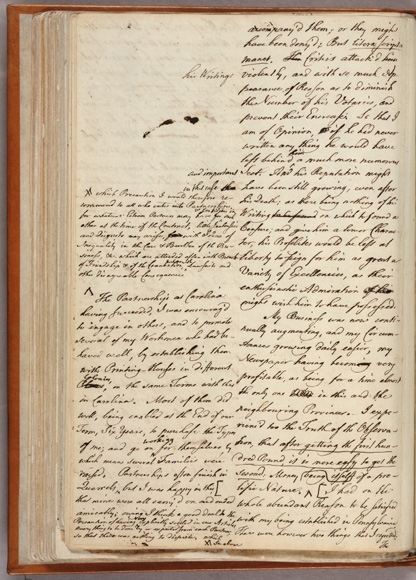 accompany'd them; or they might
have been deny'd; But litera script-
manet. Critics attack'd his
his Writings
violently, and with so much Ap-
pearance of Reason as to diminish
the Number of his Votaries, and
prevent their Encrease; So that I
am of Opinion, if he had never
written any thing he would have
left behind him a much more numerous
and important
Sect. And his Reputation might
in that case
have been still growing, even after
his Death; as there being nothing of his
Writing on which to found a
Censure; and give him a lower Charac-
ter, his Proselites would be left at
Liberty to feign for him, as great a
Variety of Excellencies, as their
enthusiastic Admiration
might wish him to have possessed.
My Business was now conti-
nually augmenting, and my Circum-
stances growing daily easier, my
Newspaper having become very
profitable, as being for a time almost
the only one in this and the
neighbouring Provinces. I expe-
rienc'd too the Truth of the Observa-
tion, that after getting the first hun-
dred Pound, it is more easy to get the
second: Money itself being of a pro-
lific Nature: I had on the
whole abundant Reason to be satisfied
with my being established in Pensylvania
There were however two things that I regretted
which Precaution I would therefore re-
commend to all who enter into Partnerships,
for whatever Esteem Partners may have for
each
other at the time of the Contract, little Jealousies
and Disgusts may arise, with Ideas of
Inequality in the Care & Burthen of the Bu-
siness, &c. which are attended often with Breach
of Friendship & of the Connection, perhaps with Lawsuits and
other disagreable Consequences.
The Partnership at Carolina
having succeeded, I was encourag'd
to engage in others, and to promote
several of my Workmen who had be-
haved well, by establishing them
with Printing-Houses in different
Colonies
on the same Terms with that
in Carolina. Most of them did
well, being enabled at the End of our
Term, Six Years, to purchase the Types
of me; and go on working for themselves, by
which means several Families were
raised. Partnerships often finish in
Quarrels, but I was happy in this,
that mine were all carry'd on and ended
amicably; owing I think a good deal to the
Precaution of having very explicitly settled in our Articles
every thing to be done by or expected from each Partner,
so that there was nothing to dispute,